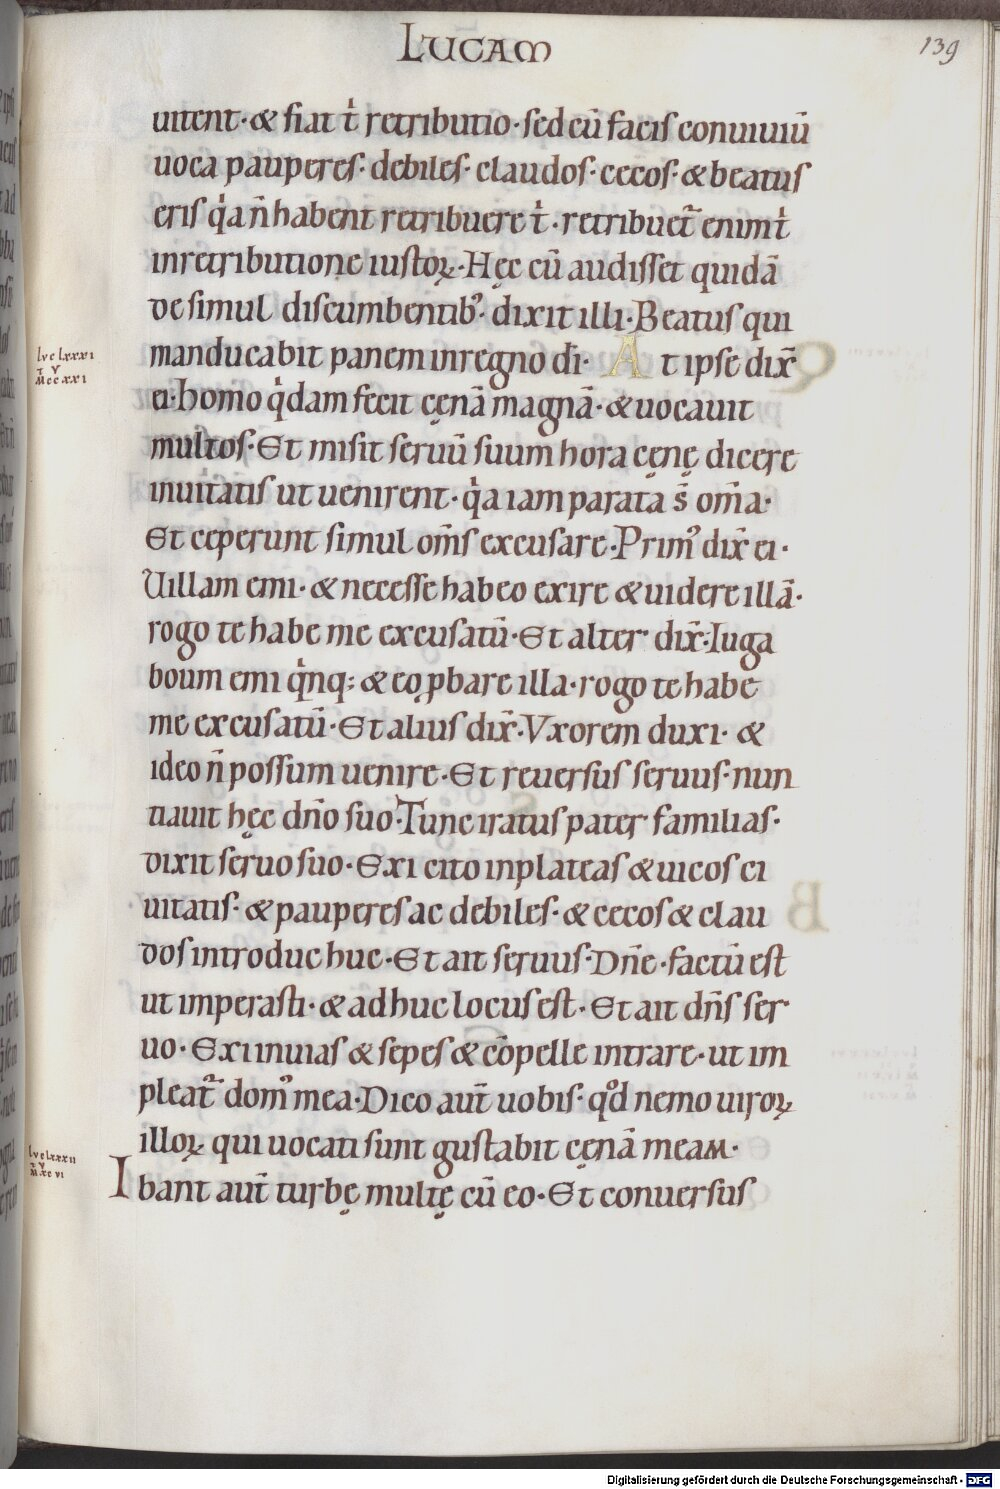 LUCAM
139
uitent· & fiat t̾ retributio· sed cū facis conuiuiū
uoca pauperes· debiles· claudos· cecos· & beatus
eris q̾a n̄ habent retribuere t̾· retribuet᷑ enim t̾
inretributione iustoꝝ· Hęc cū audisset quidā
de simul discumbentib᾽· dixit illi· Beatus qui
manducabit panem inregno dī· At ipse dix̄
ei· homo q̾dam fecit cęnā magnā· & uocauit
multos· Et misit seruū suum hora cęnę dicere
inuitatis ut uenirent· q̾a iam parata s̄ om̄a·
Et ceperunt simul om̄s excusare· Prim᾽ dix̄ ei·
Uillam emi· & necesse habeo exire & uidere illā·
rogo te habe me excusatū· Et alter dix̄· Iuga
boum emi q̾nq; & eo ꝓbare illa· rogo te habe
me excusatū· Et alius dix̄· Vxorem duxi· &
ideo n̄ possum uenire· Et reuersus seruus· nun
tiauit hęc dn̄o suo· Tunc iratus pater familias·
dixit seruo suo· Exi cito inplateas & uicos ci
uitatis· & pauperes ac debiles· & cecos & clau
dos introduc huc· Et ait seruus· Dn̄e· factū est
ut imperasti· & adhuc locus est· Et ait dn̄s ser
uo· Exi inuias & sepes & cōpelle intrare· ut im
pleat᷑ dom᾽ mea· Dico aut̄ uobis· qd̾ nemo uiroꝝ
illoꝝ qui uocati sunt gustabit cęnā meam·
Ibant aut̄ turbę multę cū eo· Et conuersus
lvc lxxxi
T V
M ccxxi
lvc lxxxii
T V
M xcvi
Digitalisierung gefördert durch die Deutsche Forschungsgemeinschaft - DFG